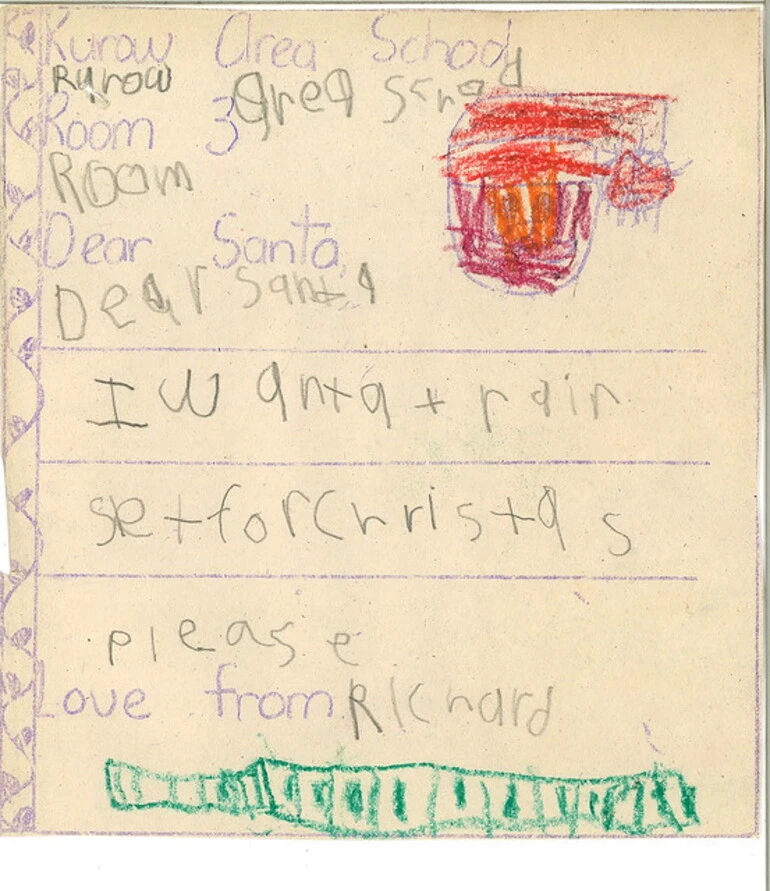 Kurow Area School
Rurow area scnod
Room 3
Room
Dear Santa
Dear santa
I wanta train
set for Christas
please
Love from Richard